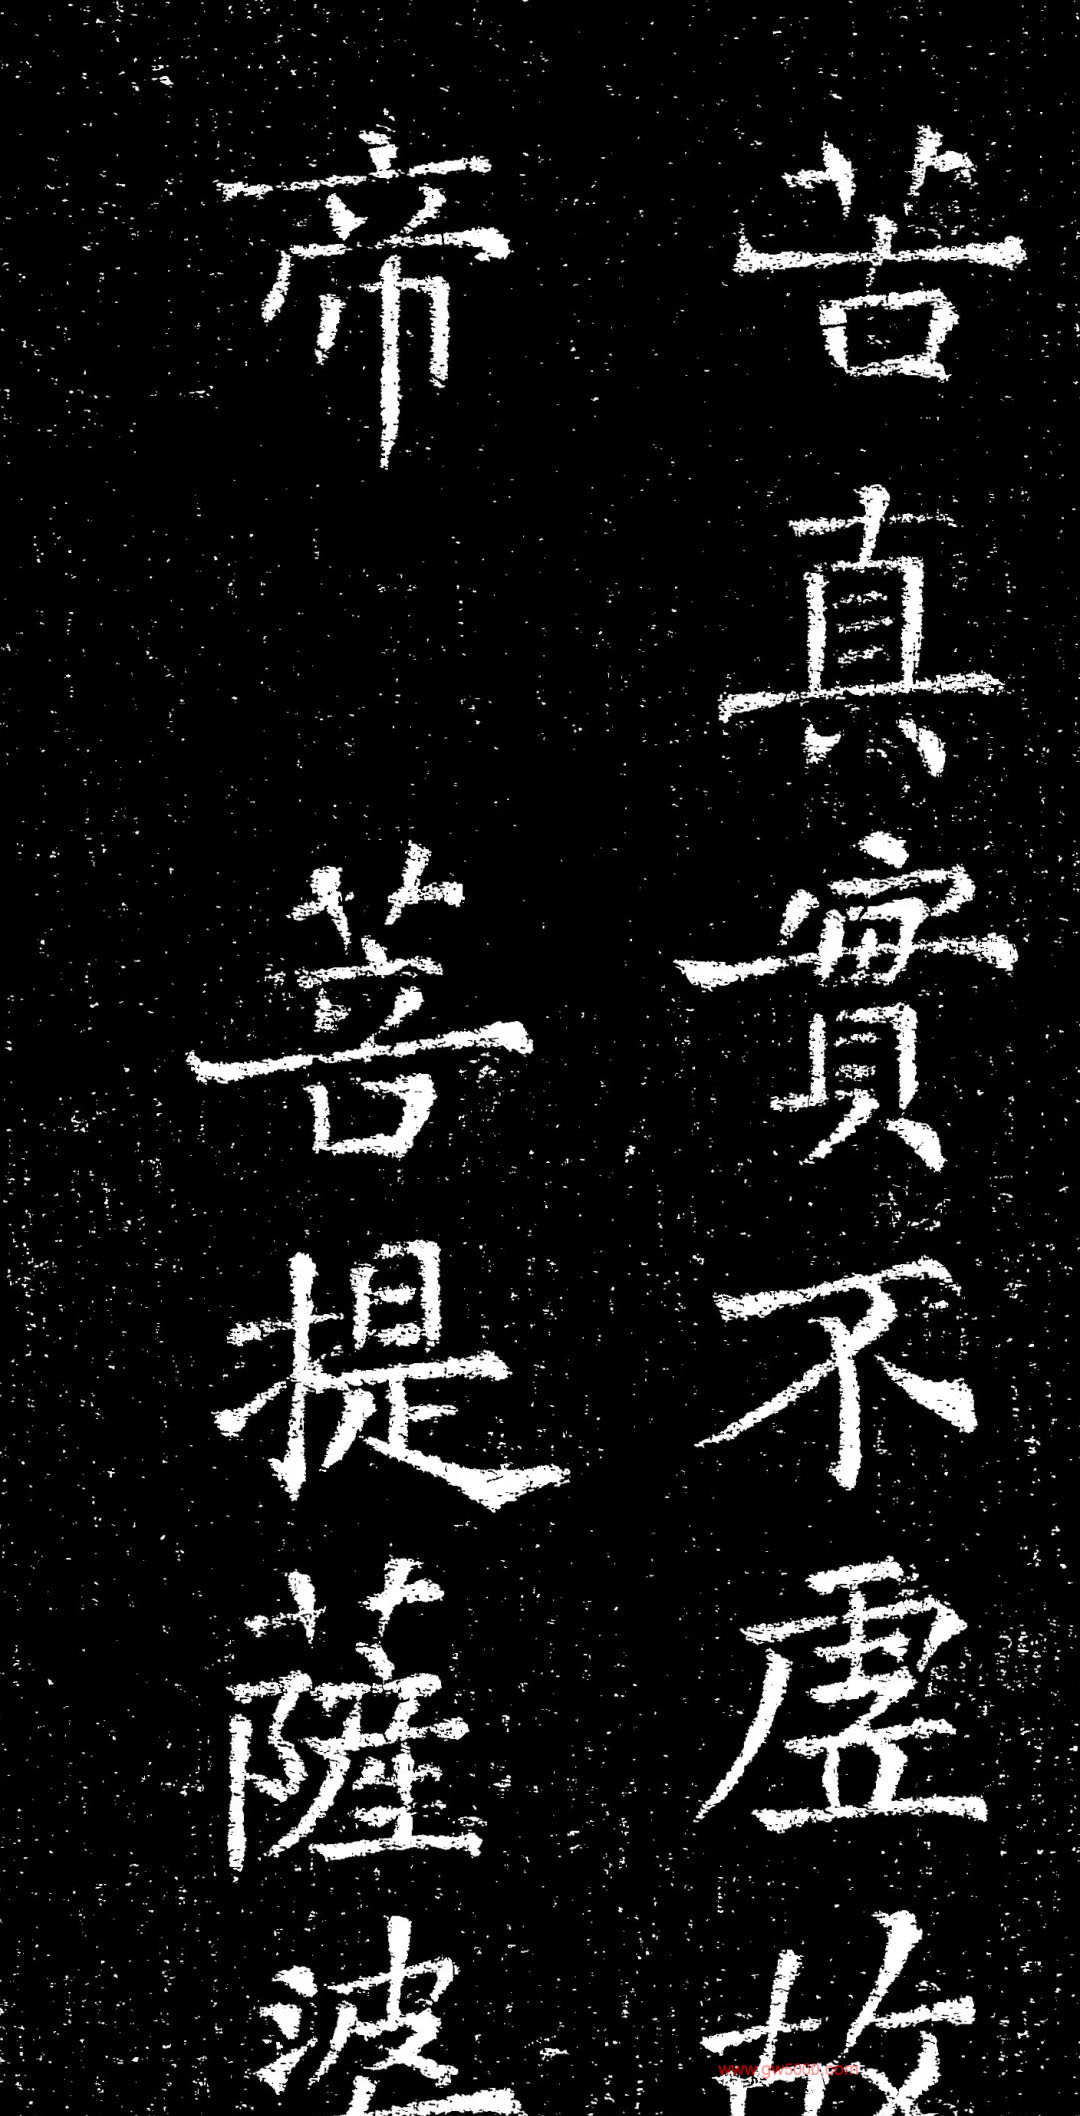 苦真實不虛故
帝 菩提薩婆
www.gw5000.com